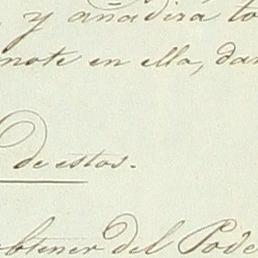 y añadira to
note en ella, dar
de estos.
obtener del Pode